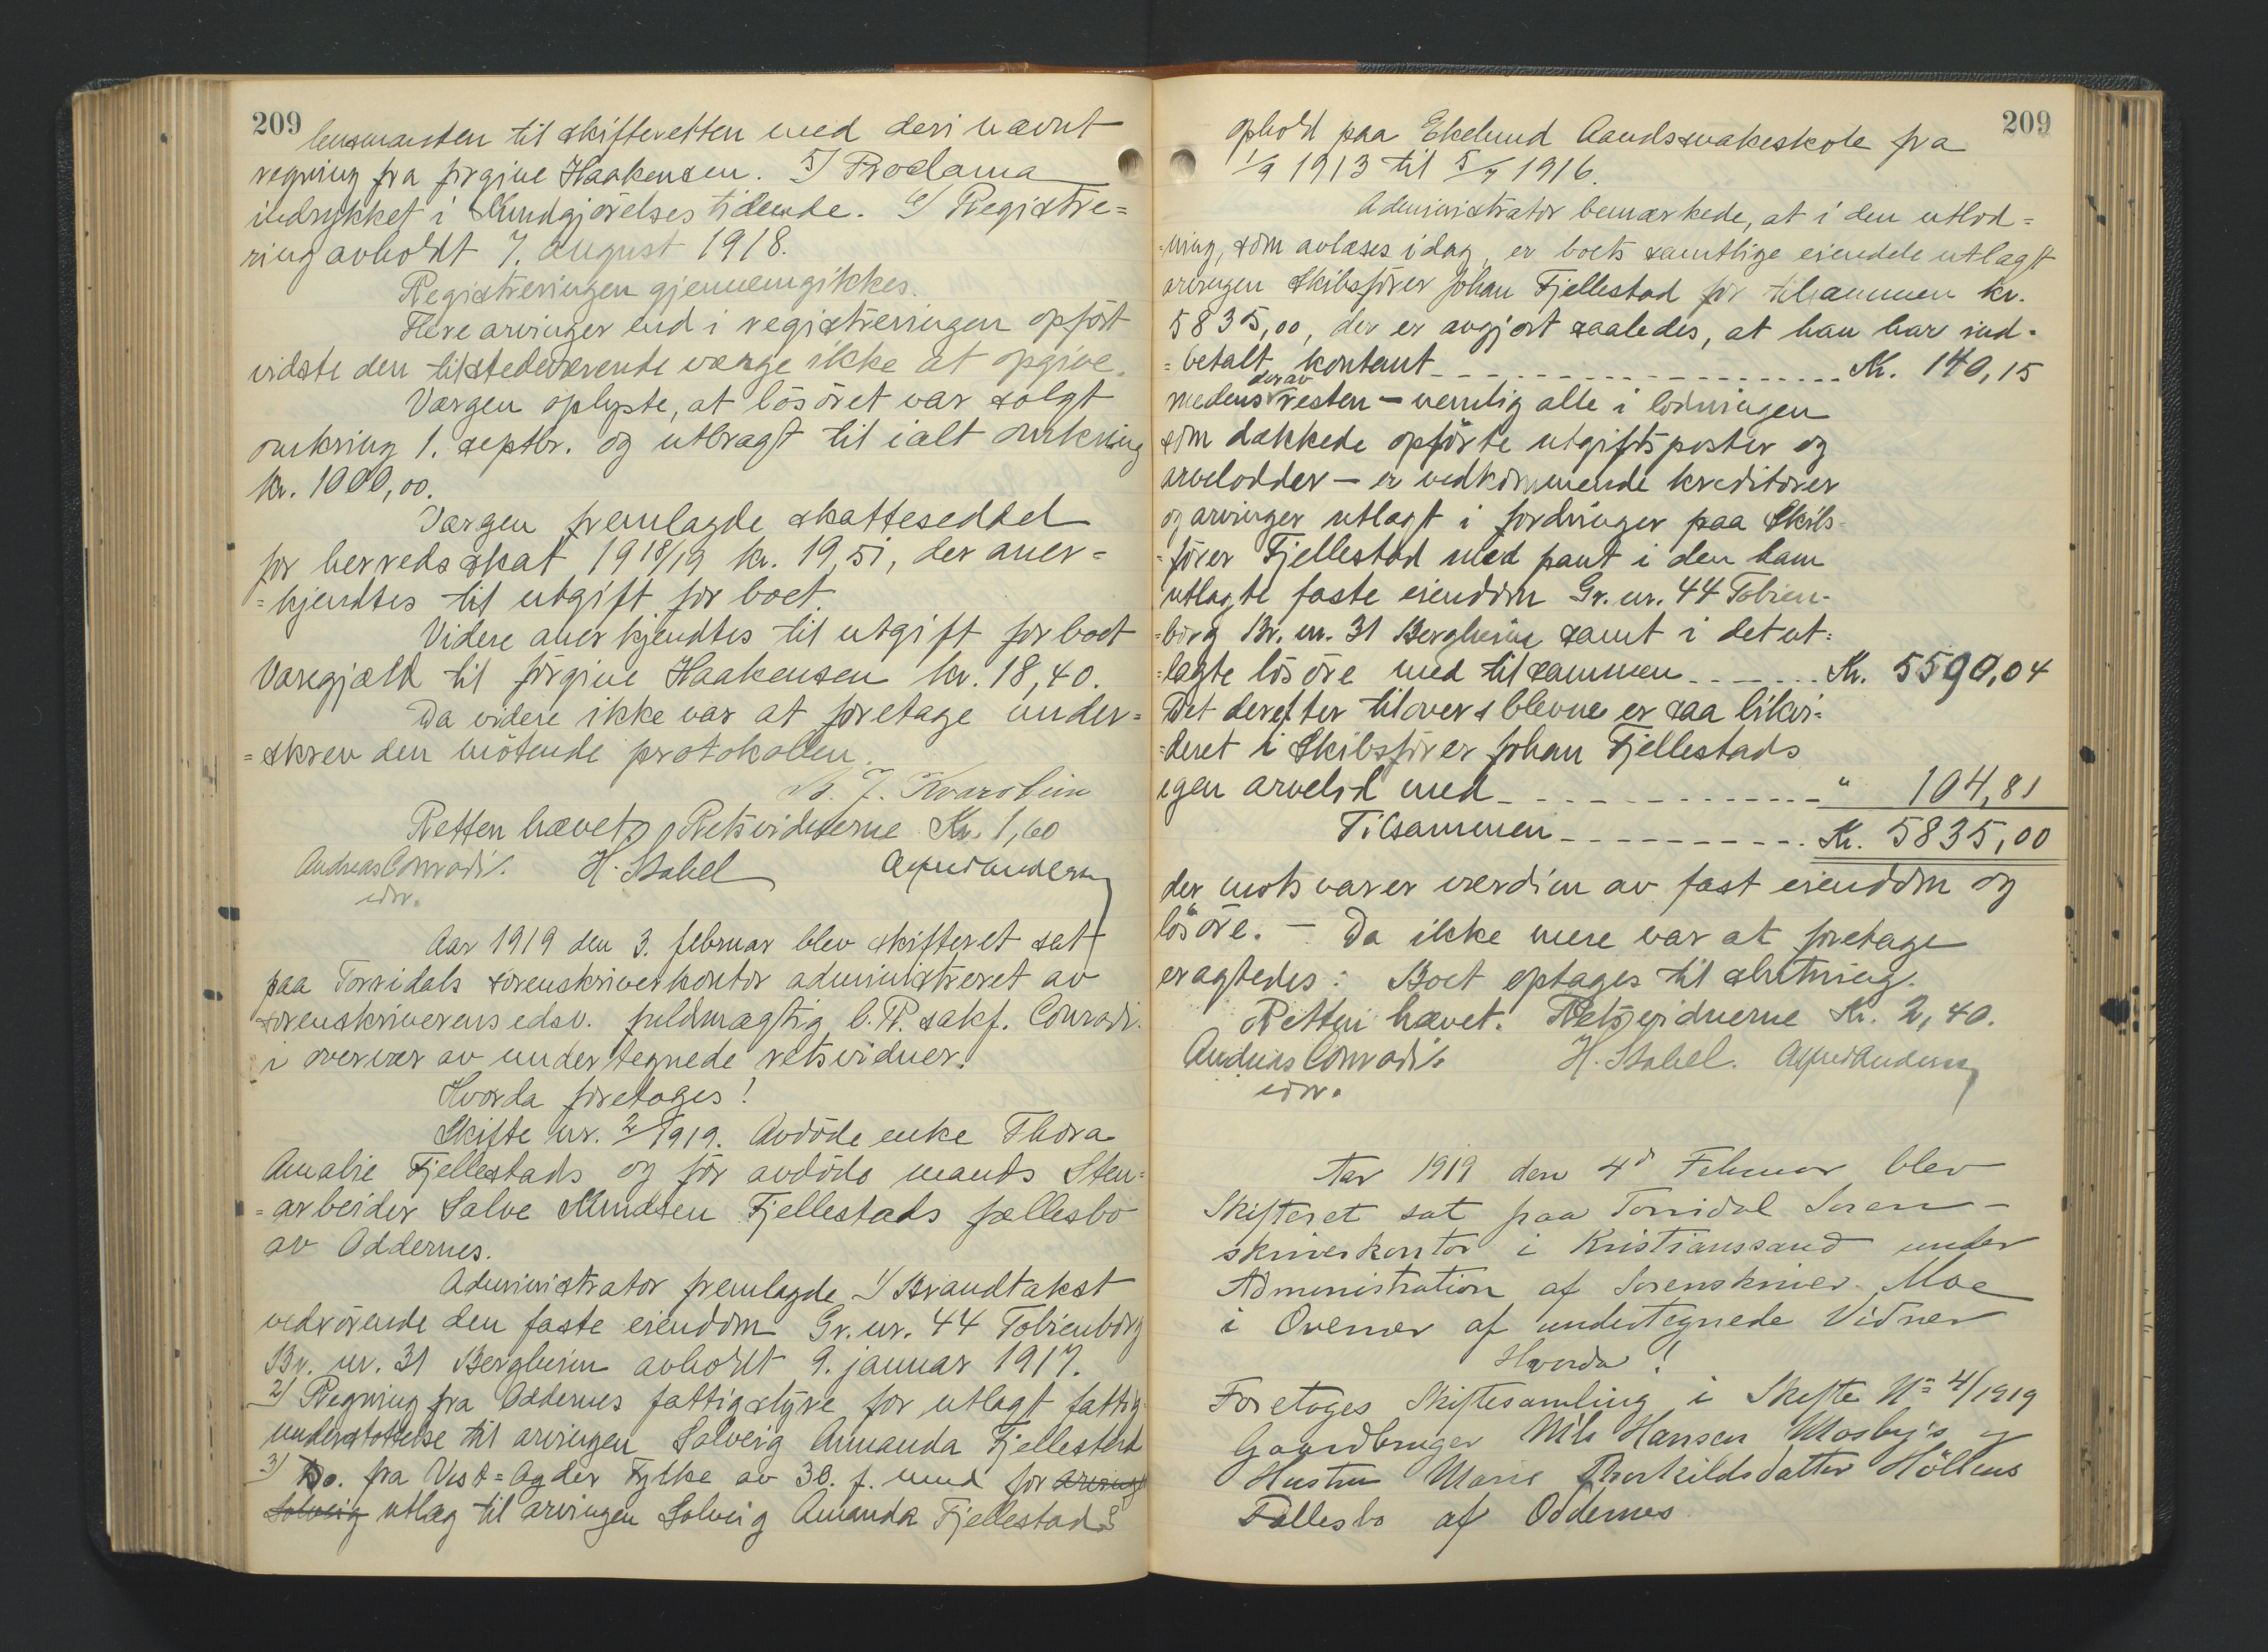 209
lensmanden til skifteretten med deri nævnt
regning fra Jørgine Haakensen. 5/ Proclama
indrykket i Kundgjørelsestidende. 6/ Registre=
ring avholdt 7. august 1918.
Registreringen gjennemgikkes.
Flere arvinger end i registreringen opført
vidste den tilstedeværende værge ikke at opgive.
Værgen oplyste, at løsøret var solgt
omkring 1. septbr. og utbragt til ialt omkring
kr. 1000,00.
Værgen fremlagde skatteseddel
for herredsskat 1918/19 kr. 19,51, der aner=
=kjendtes til utgift for boet.
Videre anerkjendtes til utgift for boet
Varegjæld til Jørgine Haakensen kr. 18,40.
Da videre ikke var at foretage under=
=skrev den møtende protokollen.
Kvarstein
Retten hævet, Retsvidnerne Kr. 1,60
Andreas Conradi /.
edsv.
H. Stabel
Alfred Andersen
Aar 1919 den 3. februar blev skifteret sat
paa Torridals sorenskriverkontor administreret av
sorenskriverens edsv. fuldmægtig, O.R. sakf. Conradi.
i overvær av undertegnede retsvidner.
Hvorda foretoges!
Skifte nr. 2/1919. Avdøde enke Thora
Amalie Fjellestads og før avdøde mands Sten=
=arbeider Salve Knudsen Fjellestads fællesbo
av Oddernes.
Administrator fremlagde 1/ Brandtakst
vedrørende den faste eiendom Gr. nr. 44 Tobienborg
Br. nr. 31 Bergheim avholdt 9. januar 1917.
2/ Regning fra Oddernes fattigstyre for utlagt fattig-
understøttelse til arvingen Solveig Amanda Fjellestad
3/ Do. fra Vest=Agder Fylke av 30. f. mnd for arvinge
Solveig utlæg til arvingen Solveig Amanda Fjellestads
209
ophold paa Ekelund Aandssvakeskole fra
1/9 1913 til 5/7 1916.
Administrator bemærkede, at i den utlod=
=ning, som avlæses idag, er boets samtlige eiendele utlagt
arvingen Skibsfører Johan Fjellestad for tilsammen kr.
5835,00, der er avgjort saaledes, at han har ind-
=betalt kontant Kr. 140,15
medens derav resten – nemlig alle i lodningen
som dækkede opførte utgiftsposter og
arvelodder – er vedkommende kreditorer
og arvinger utlagt i fordringer paa Skibs-
=fører Fjellestad med pant i den ham
utlagte faste eiendom Gr. nr. 44 Tobien-
=borg Br. nr. 31 Bergheim samt i det ut=
=lagte løsøre med tilsammen Kr. 5590,04
Det derefter tilovers blevne er saa likvi=
=deret i Skibsfører Johan Fjellestads
egen arvelod med " 104,81
Tilsammen Kr. 5835,00
der motsvarer værdien av fast eiendom og
løsøre. – Da ikke mere var at foretage
eragtedes: Boet optages til slutning.
Retten hævet. Retsvidnerne Kr. 2,40.
Andreas Conradi /.
edsv.
H. Stabel.
Alfred Andersen
Aar 1919 den 4d Februar blev
Skifteret sat paa Torridal Soren-
skriverkontor i Kristianssand under
Administration af Sorenskriver Moe
i Overvær af undertegnede Vidner
Hvorda!
Foretoges Skiftesamling i Skifte No 4/1919
Gaardbruger Nils Hansen Mosby's og
Hustru Marie Thorkildsdatter Höllens
Fællesbo af Oddernes